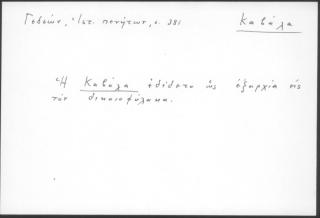 Γεδεών, Ἱστ. πενήτων, σ. 381 Καβάλα
Ἡ Καβάλα ἐδίδετο ὡς ἐξαρχία εἰς
τὸν δικαιοφύλακα.